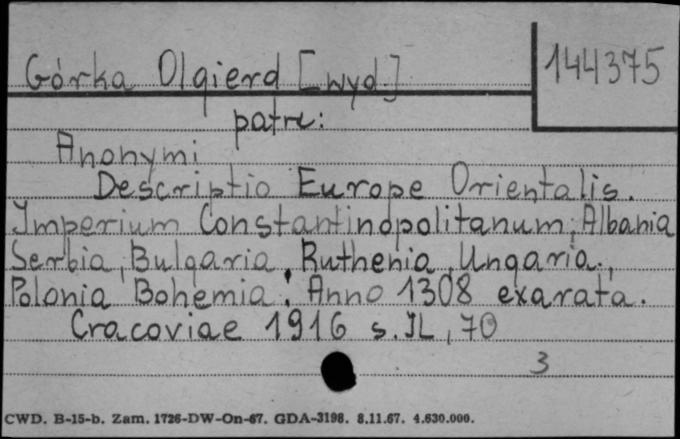 Górka Olgierd [wyd.]
144375
patrz:
Anonymi
Descriptio Europe Orientalis.
Imperium Constantinopolitanum, Albania
Serbia, Bulgaria, Ruthenia, Ungaria,
Polonia Bohemia: Anno 1308 exarata.
Cracoviae 1916 s. IL, 70
3
CWD. B-15-b. Zam. 1726-DW-On-67. GDA-3198. 8.11.67. 4.630.000.